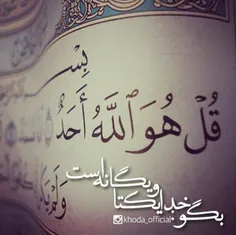 بِسْ
قُلْ هُوَ اللَّهُ أَحَدٌ
وَلَمْ یَ
بگو خدا یکتا و یگانه است
khoda_official